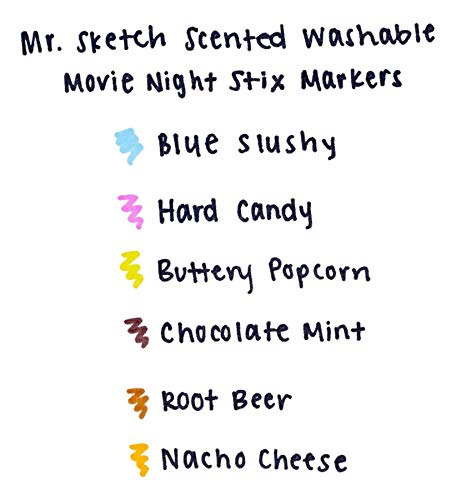 Mr. Sketch Scented Washable
Movie Night Stix Markers
Blue Slushy
Hard Candy
Buttery Popcorn
Chocolate Mint
Root Beer
Nacho Cheese